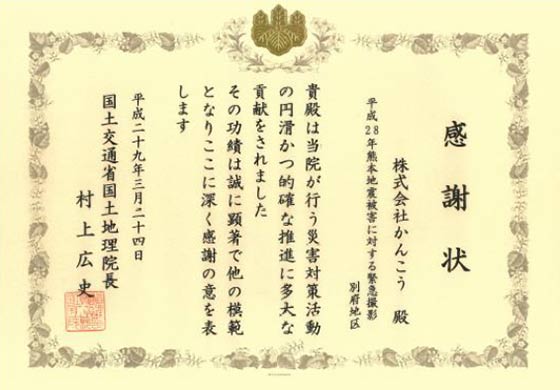 感謝状
株式会社かんこう 殿
平成28年熊本地震被害に対する緊急撮影
別府地区
貴殿は当院が行う災害対策活動
の円滑かつ的確な推進に多大な
貢献をされました
その功績は誠に顕著で他の模範
となりここに深く感謝の意を表
します
平成二十九年三月二十四日
国土交通省国土地理院長
村上広史